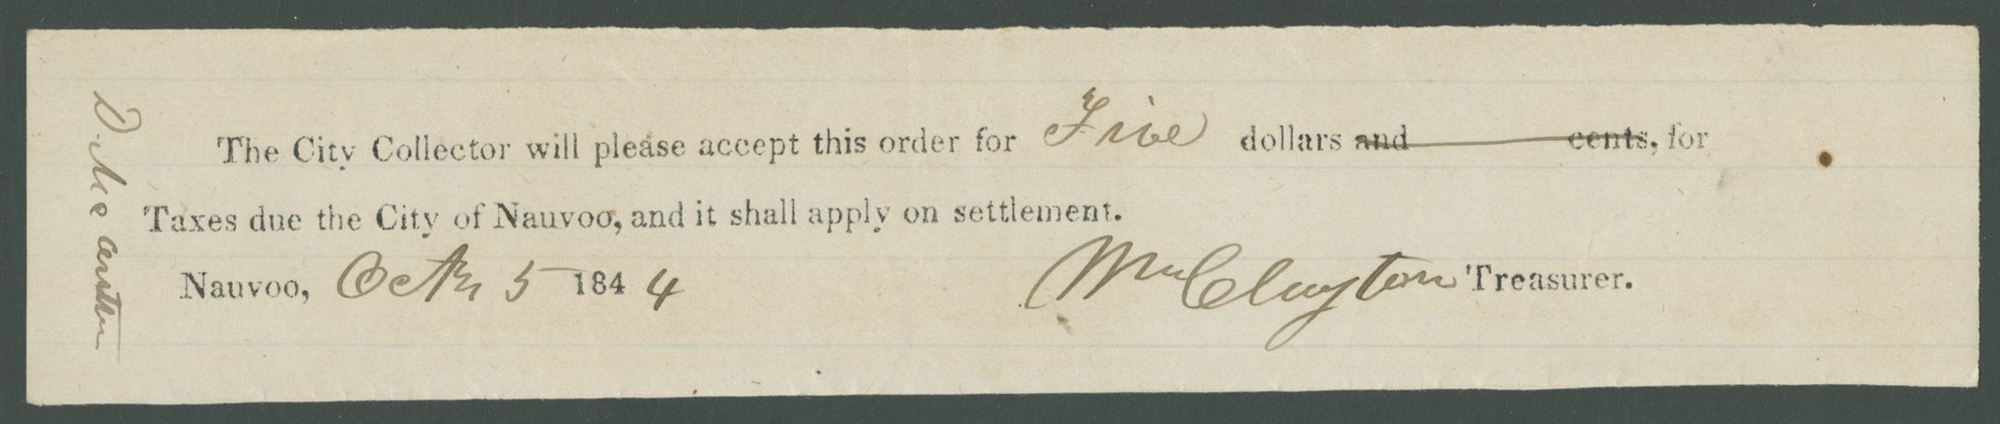 The City Collector will please accept this order for Five dollars and cents, for
Taxes due the City of Nauvoo, and it shall apply on settlement.
Nauvoo, Octr 5 1844 Wm Clayton Treasurer.